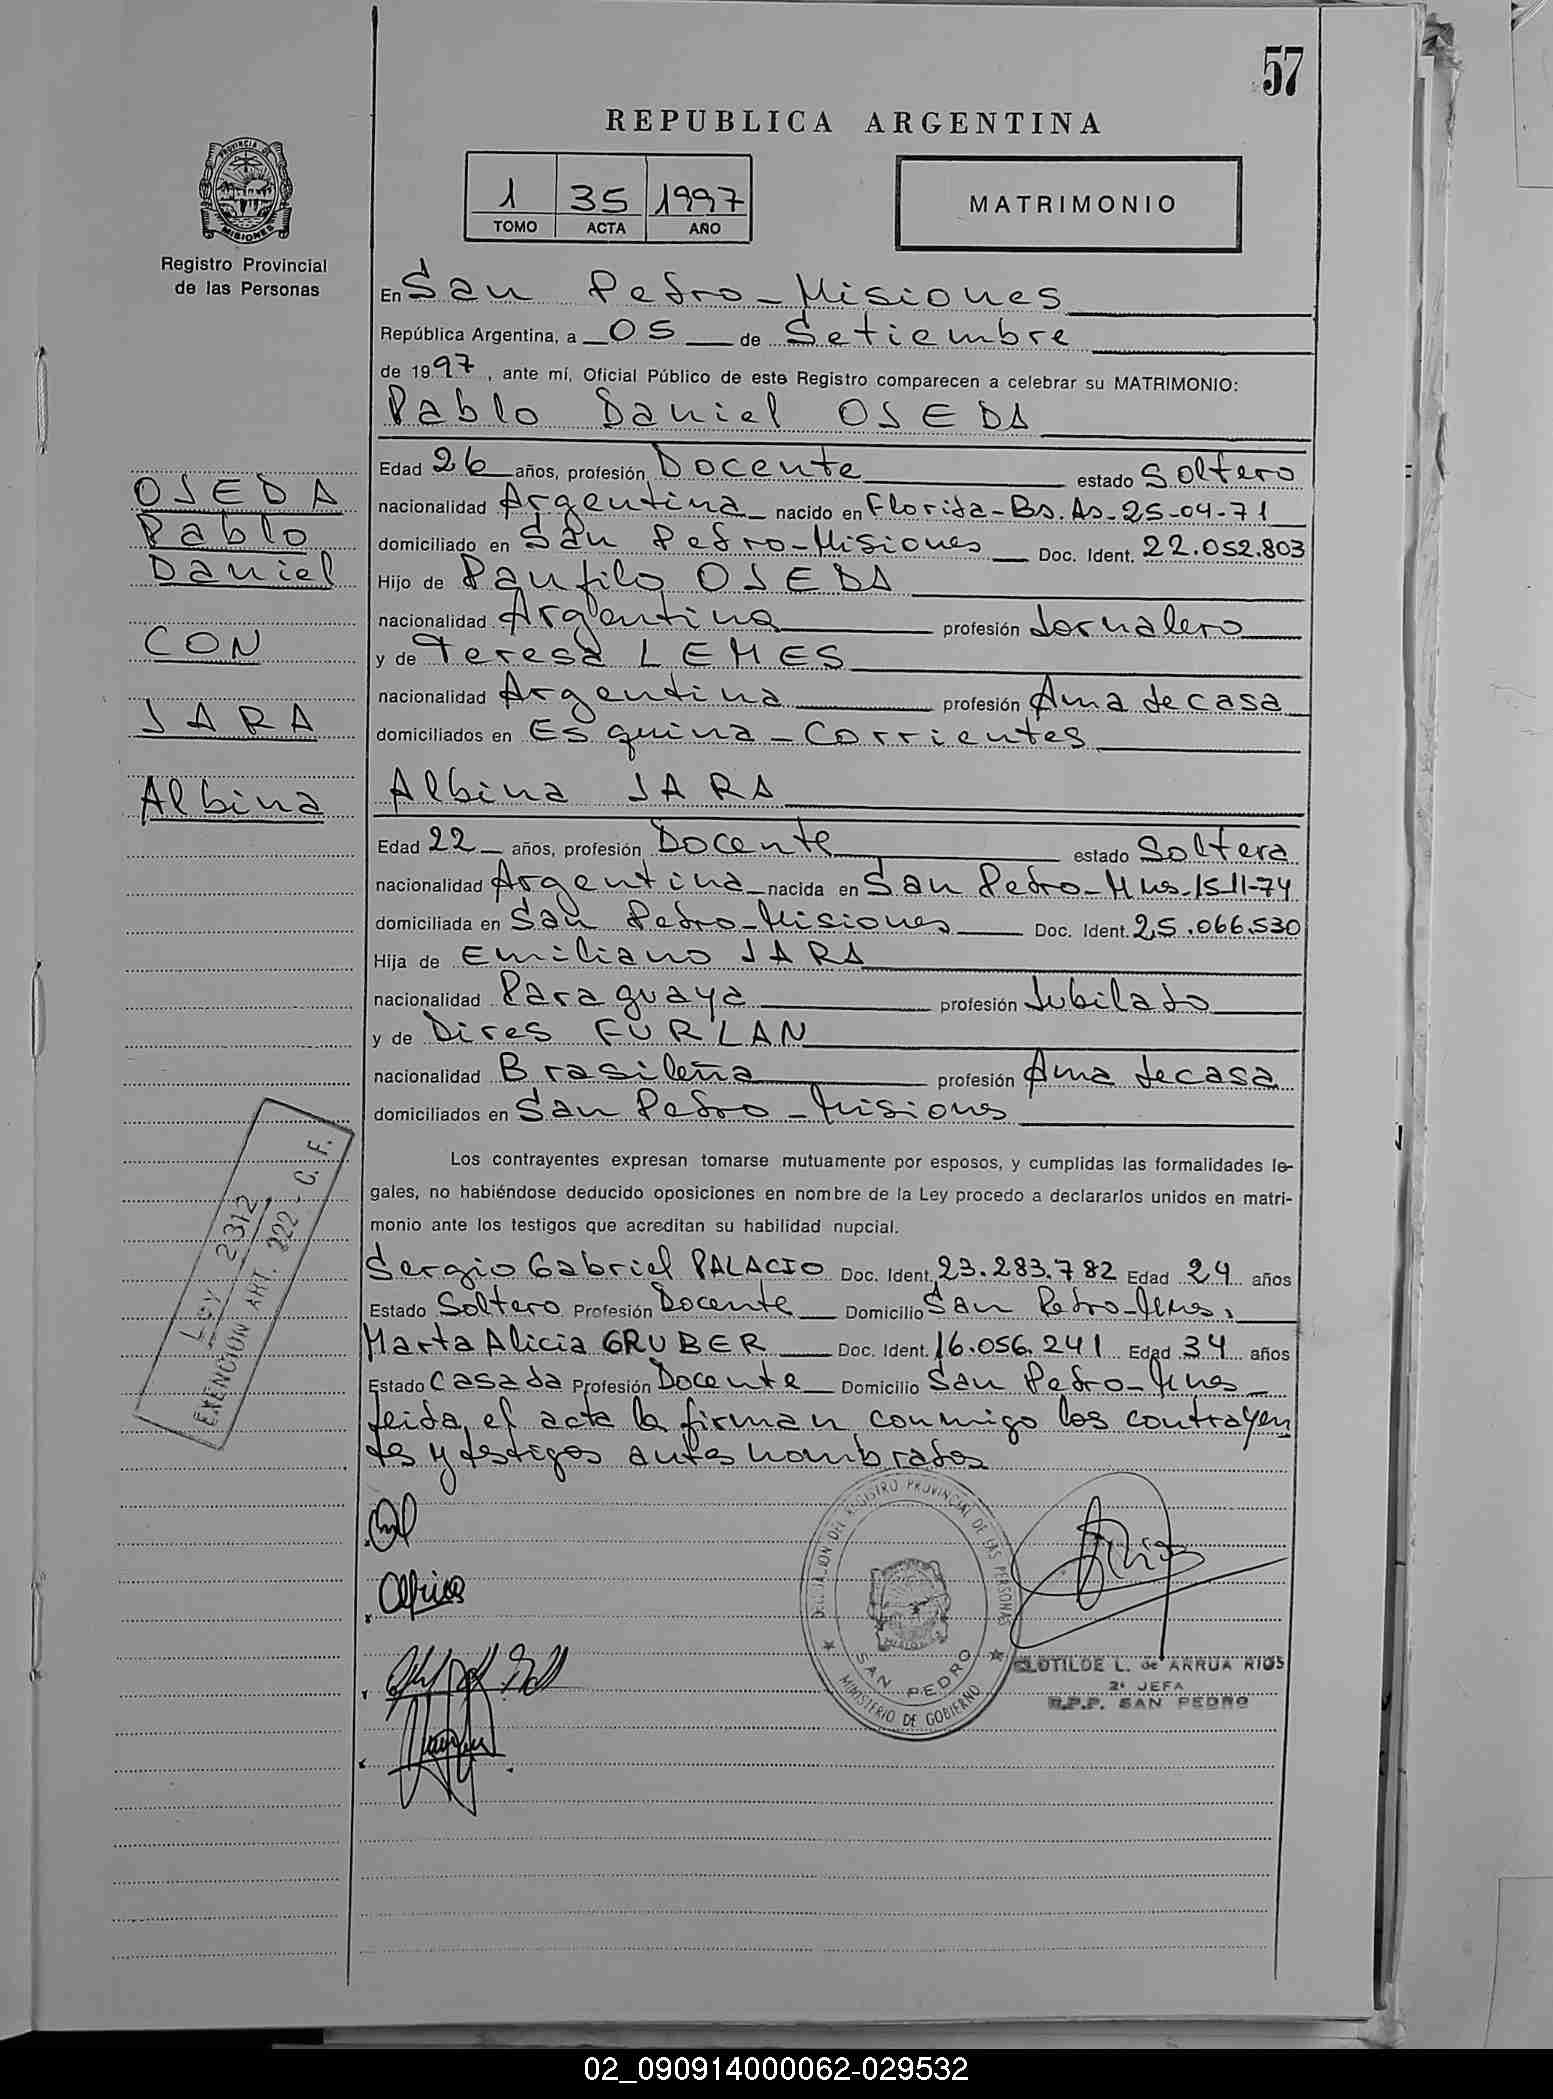 57
REPUBLICA ARGENTINA
1 35 1997
TOMO ACTA AÑO
MATRIMONIO
PROVINCIA DE
MISIONES
Registro Provincial
de las Personas
En San Pedro - Misiones
República Argentina, a 05 de Setiembre
de 1997, ante mí, Oficial Público de este Registro comparecen a celebrar su MATRIMONIO:
Pablo Daniel OSEDA
Edad 26 años, profesión Docente estado Soltero
nacionalidad Argentina nacido en Florida-Bs.As-25-04-71
domiciliado en San Pedro-Misiones Doc. Ident. 22.052.803
Hijo de Panfilo OSEDA
nacionalidad Argentina profesión Jornalero
y de Teresa LEMES
nacionalidad Argentina profesión Ama de casa
domiciliados en Esquina - Corrientes
Albina JARA
Edad 22 años, profesión Docente estado Soltera
nacionalidad Argentina nacida en San Pedro-Mnes-15-11-74
domiciliada en San Pedro-Misiones Doc. Ident. 25.066.530
Hija de Emiliano JARA
nacionalidad Paraguaya profesión Jubilado
y de Dires FURLAN
nacionalidad Brasileña profesión Ama de casa
domiciliados en San Pedro - Misiones
Los contrayentes expresan tomarse mutuamente por esposos, y cumplidas las formalidades le-
gales, no habiéndose deducido oposiciones en nombre de la Ley procedo a declararlos unidos en matri-
monio ante los testigos que acreditan su habilidad nupcial.
Sergio Gabriel PALACIO Doc. Ident. 23.283.782 Edad 24 años
Estado Soltero Profesión Docente Domicilio San Pedro-Mnes.
Marta Alicia GRUBER Doc. Ident. 16.056.241 Edad 34 años
Estado Casada Profesión Docente Domicilio San Pedro-Mnes
Leida el acta la firman conmigo los contrayen
tes y testigos antes nombrados
OSEDA
Pablo
Daniel
CON
JARA
Albina
LEY 2312
EXENCION ART. 222 - C. F.
DELEGACION DEL REGISTRO PROVINCIAL DE LAS PERSONAS
SAN PEDRO
MINISTERIO DE GOBIERNO
MISIONES
CLOTILDE L. de ARRUA RIOS
2ª JEFA
R.P.P. SAN PEDRO
02_090914000062-029532